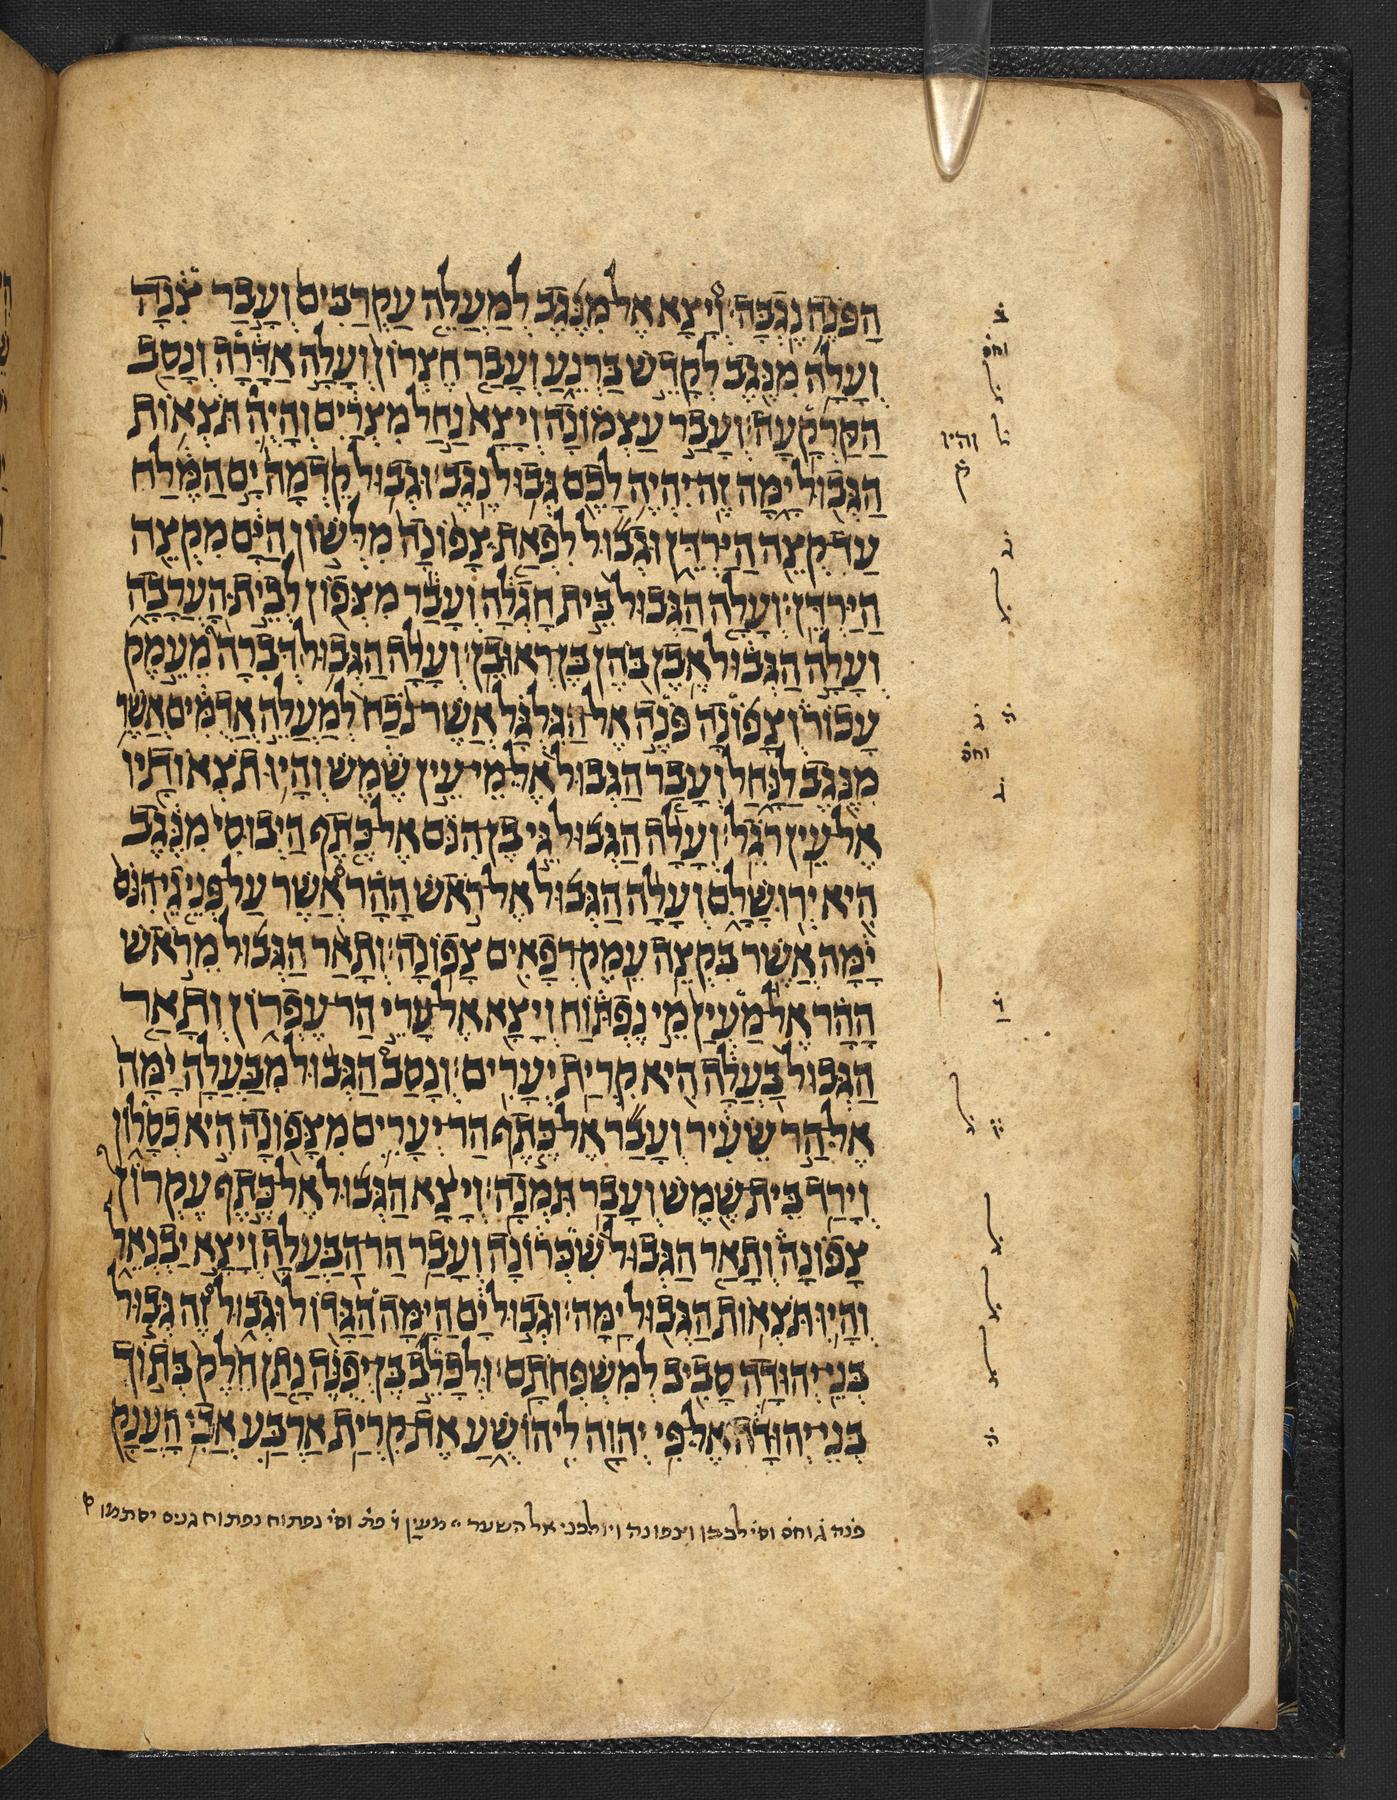 הַפֹּנֶה נֶגְבָּה׃ וְיָצָא אֶל מִנֶּגֶב לְמַעֲלֵה עַקְרַבִּים וְעָבַר צִנָה
וְעָלָה מִנֶּגֶב לְקָדֵשׁ בַּרְנֵעַ וְעָבַר חֶצְרוֹן וְעָלָה אַדָּרָה וְנָסַב
הַקַּרְקָעָה׃ וְעָבַר עַצְמוֹנָה וְיָצָא נַחַל מִצְרַיִם וְהָיָה תֹּצְאוֹת
הַגְּבוּל יָמָּה זֶה יִהְיֶה לָכֶם גְּבוּל נֶגֶב׃ וּגְבוּל קֵדְמָה יָם הַמֶּלַח
עַד קְצֵה הַיַּרְדֵּן וּגְבוּל לִפְאַת צָפוֹנָה מִלְּשׁוֹן הַיָּם מִקְצֵה
הַיַּרְדֵּן׃ וְעָלָה הַגְּבוּל בֵּית חָגְלָה וְעָבַר מִצְּפוֹן לְבֵית הָעֲרָבָה
וְעָלָה הַגְּבוּל אֶבֶן בֹּהַן בֶּן רְאוּבֵן׃ וְעָלָה הַגְּבוּל דְּבִרָה מֵעֵמֶק
עָכוֹר וְצָפוֹנָה פֹּנֶה אֶל הַגִּלְגָּל אֲשֶׁר נֹכַח לְמַעֲלֵה אֲדֻמִּים אֲשֶׁר
מִנֶּגֶב לַנָּחַל וְעָבַר הַגְּבוּל אֶל מֵי עֵין שֶׁמֶשׁ וְהָיוּ תֹצְאוֹתָיו
אֶל עֵין רֹגֵל׃ וְעָלָה הַגְּבוּל גֵּי בֶן הִנֹּם אֶל כֶּתֶף הַיְבוּסִי מִנֶּגֶב
הִיא יְרוּשָׁלִָם וְעָלָה הַגְּבוּל אֶל רֹאשׁ הָהָר אֲשֶׁר עַל פְּנֵי גֵי הִנֹּם
יָמָּה אֲשֶׁר בִּקְצֵה עֵמֶק רְפָאִים צָפוֹנָה׃ וְתָאַר הַגְּבוּל מֵרֹאשׁ
הָהָר אֶל מַעְיַן מֵי נֶפְתּוֹחַ וְיָצָא אֶל עָרֵי הַר עֶפְרוֹן וְתָאַר
הַגְּבוּל בַּעֲלָה הִיא קִרְיַת יְעָרִים׃ וְנָסַב הַגְּבוּל מִבַּעֲלָה יָמָּה
אֶל הַר שֵׂעִיר וְעָבַר אֶל כֶּתֶף הַר יְעָרִים מִצָּפוֹנָה הִיא כְסָלוֹן
וְיָרַד בֵּית שֶׁמֶשׁ וְעָבַר תִּמְנָה׃ וְיָצָא הַגְּבוּל אֶל כֶּתֶף עֶקְרוֹן
צָפוֹנָה וְתָאַר הַגְּבוּל שִׁכְּרוֹנָה וְעָבַר הַר הַבַּעֲלָה וְיָצָא יַבְנְאֵל
וְהָיוּ תֹּצְאוֹת הַגְּבוּל יָמָּה׃ וּגְבוּל יָם הַיָּמָּה הַגָּדוֹל וּגְבוּל זֶה גְּבוּל
בְּנֵי יְהוּדָה סָבִיב לְמִשְׁפְּחֹתָם׃ וּלְכָלֵב בֶּן יְפֻנֶּה נָתַן חֵלֶק בְּתוֹךְ
בְּנֵי יְהוּדָה אֶל פִּי יְהוָה לִיהוֹשֻׁעַ אֶת קִרְיַת אַרְבַּע אֲבִי הָעֲנָק
וחס
ל
ל
והיו
ק
ג
ל
ה
ג
וחס
ג
ל
ל
ל
ל
ה
פנה ג וחס וסי לבבן וצפונה ולפני אל השער מעין פת וסי נפתוח נפתוח